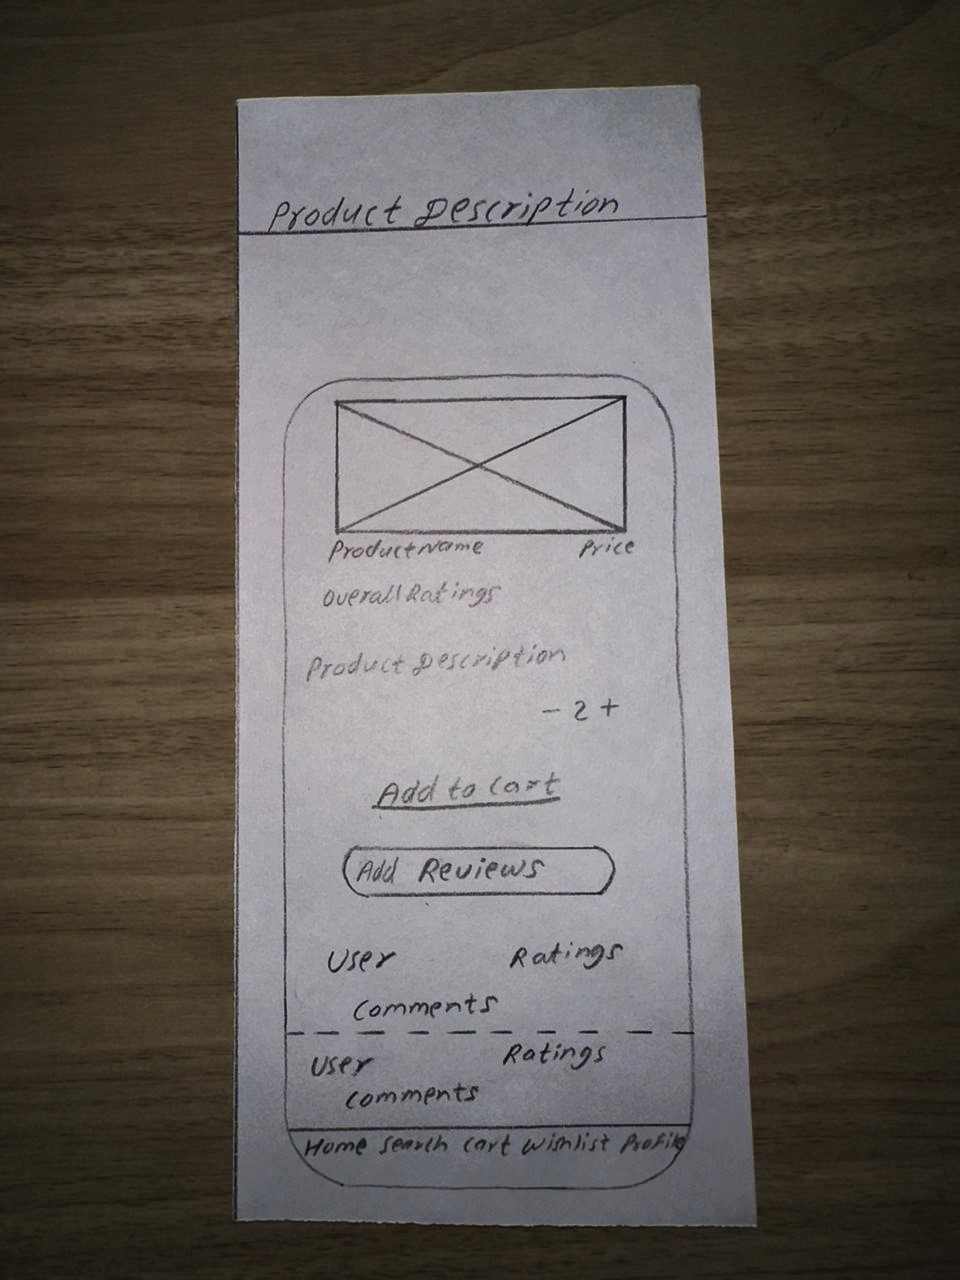 Product Description
Productname Price
Overall Ratings
Product Description
- 2 +
Add to Cart
Add Reviews
User Ratings
Comments
User Ratings
Comments
Home Search Cart Wishlist Profile